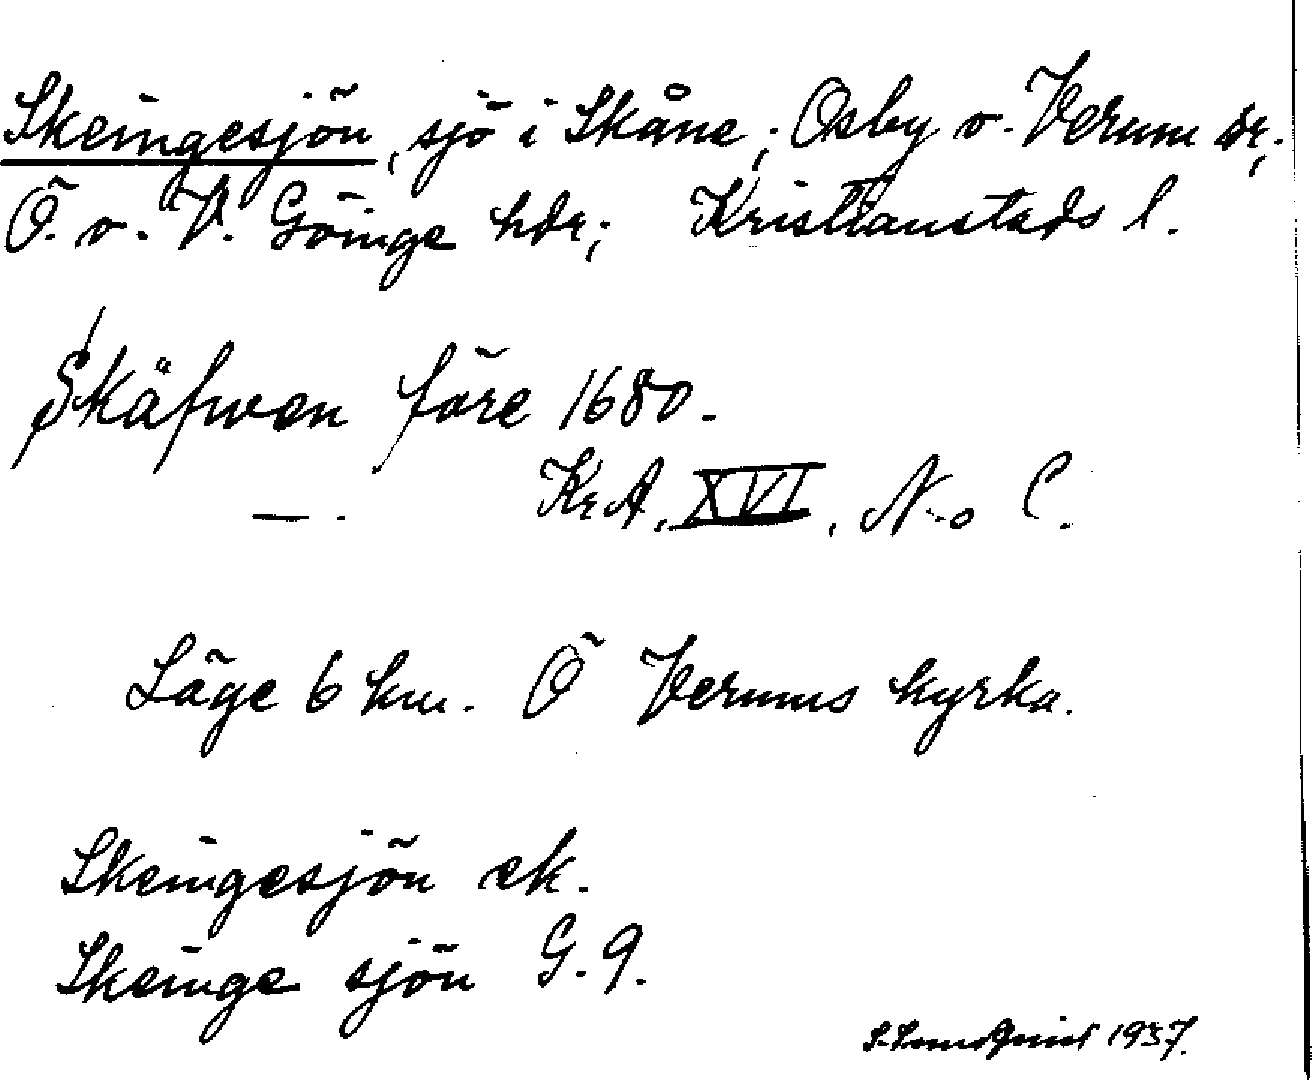 Skeingesjön, sjö i Skåne; Osby o. Verum sr;
Ö. o. V. Göinge hdr; Kristianstads l.
Skäfwen före 1680.
— . KrA, XVI, No C.
Läge 6 km. Ö Verums kyrka.
Skeingesjön ek.
Skeinge sjön G. 9.
1937.